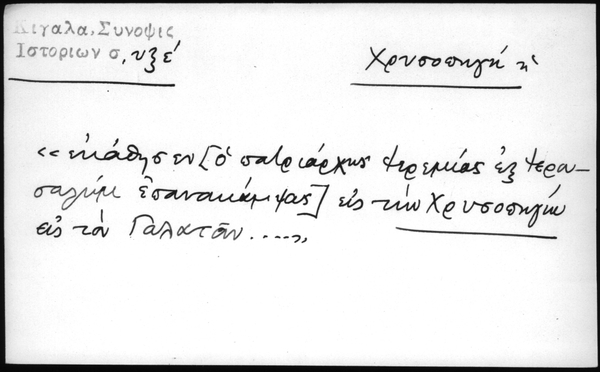 Κιγαλα, Συνοψις
Ιστοριων σ, υξέ
Χρυσοπηγή ἡ
«ἐκάθησεν [ὁ πατριάρχης Ἱερεμίας ἐξ Ἱερου-
σαλὴμ ἐπανακάμψας] εἰς τὴν Χρυσοπηγὴν
εἰς τὸν Γαλατᾶν.....»